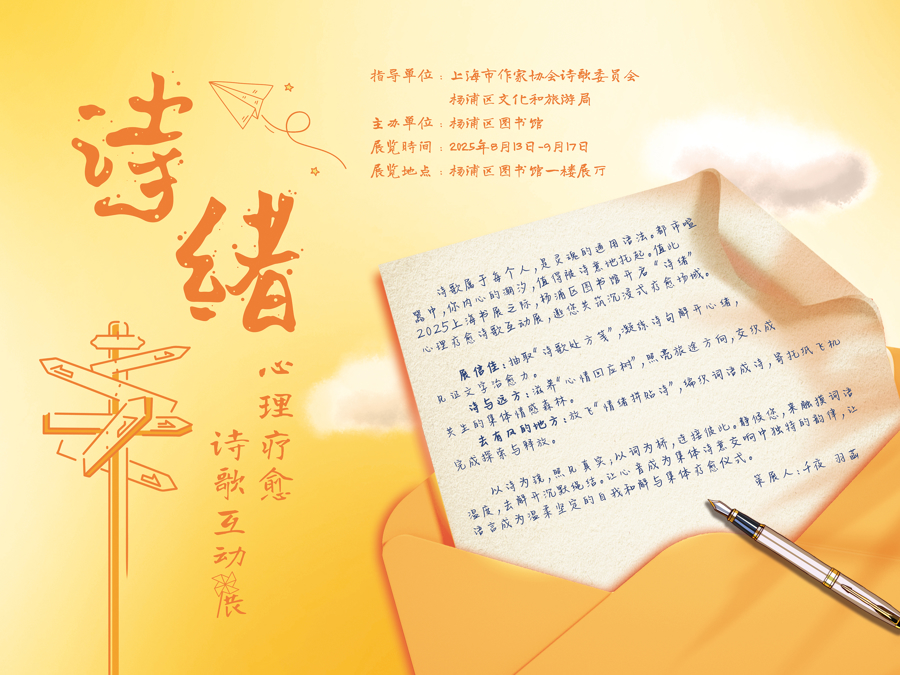 诗绪
心理疗愈
诗歌互动展
指导单位：上海市作家协会诗歌委员会
杨浦区文化和旅游局
主办单位：杨浦区图书馆
展览时间：2025年8月13日-9月17日
展览地点：杨浦区图书馆一楼展厅
诗歌属于每个人，是灵魂的通用语法。都市喧
嚣中，你内心的潮汐，值得被诗意地托起。值此
2025上海书展之际，杨浦区图书馆开启“诗绪”
心理疗愈诗歌互动展，邀您共筑沉浸式疗愈场域。
展信佳：抽取“诗歌处方笺”，凝练诗句解开心绪，
见证文字治愈力。
诗与远方：滋养“心情回应树”，照亮旅途方向，交织成
共生的集体情感森林。
去有风的地方：放飞“情绪拼贴诗”，编织词语成诗，寄托纸飞机
完成探索与释放。
以诗为镜，照见真实，以词为桥，连接彼此。静候您，来触摸词语
温度，去解开沉默绳结。让心音成为集体诗意交响中独特的韵律，让
语言成为温柔坚定的自我和解与集体疗愈仪式。
策展人：千夜 羽菡